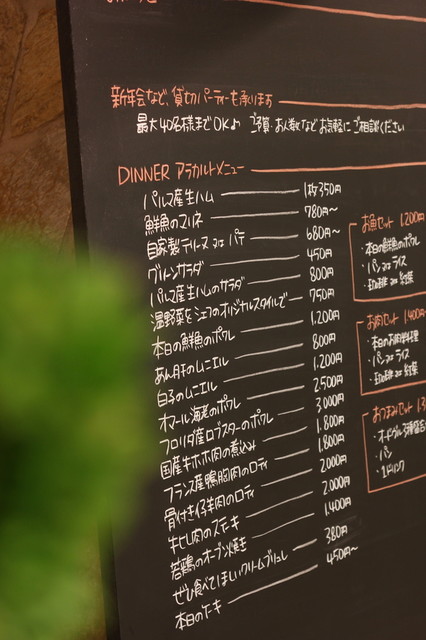 新年会など、貸切パーティーも承ります
最大40名様までOK♪ ご予算・お人数などお気軽にご相談ください
DINNER アラカルトメニュー
パルマ産生ハム 1枚350円
鮮魚のマリネ 780円~
自家製テリーヌ or パテ 680円~
グリーンサラダ 450円
パルマ産生ハムのサラダ 800円
温野菜をシェフのオリジナルスタイルで 750円
本日の鮮魚のポワレ 1.200円
あん肝のムニエル 800円
白子のムニエル 1.200円
オマール海老のポワレ 2500円
フロリダ産ロブスターのポワレ 3000円
国産牛ホホ肉の煮込み 1.800円
フランス産鴨胸肉のロティ 1.800円
骨付き仔羊肉のロティ 2000円
牛ヒレ肉のステーキ 2.000円
若鶏のオーブン焼き 1.400円
ぜひ食べてほしいクリームブリュレ 380円
本日のケーキ 450円~
お魚セット 1.200円
・本日の鮮魚のポワレ
・パン or ライス
・珈琲 or 紅茶
お肉セット 1.400円
・本日のお肉料理
・パン or ライス
・珈琲 or 紅茶
おつまみセット
・オードブル3種盛合
・パン
・1ドリンク